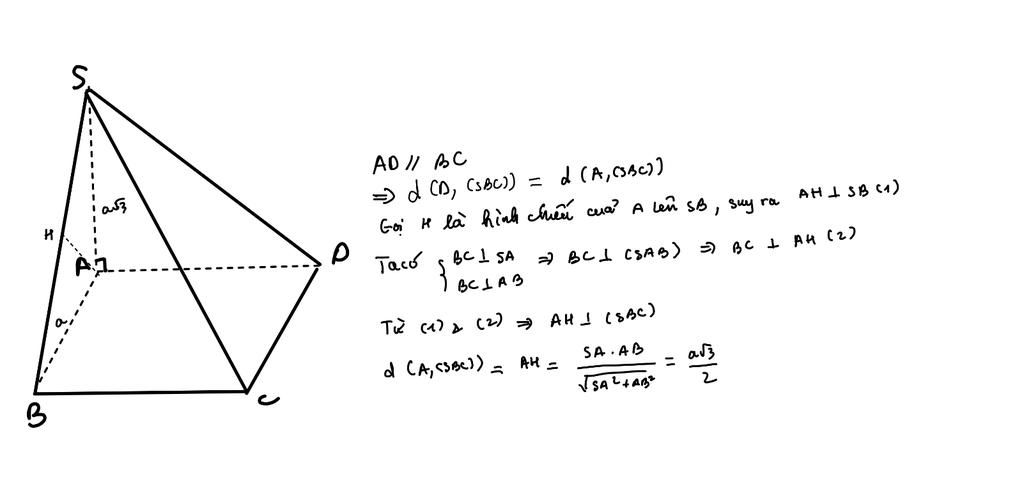 S
a√3
H
A
D
a
B
C
AD // BC
⇒ d (D, (SBC)) = d (A, (SBC))
Gọi H là hình chiếu của A lên SB, suy ra AH ⊥ SB (1)
Ta có { BC ⊥ SA ⇒ BC ⊥ (SAB) ⇒ BC ⊥ AH (2)
BC ⊥ AB
Từ (1) & (2) ⇒ AH ⊥ (SBC)
d (A, (SBC)) = AH = SA . AB / √SA² + AB² = a√3 / 2